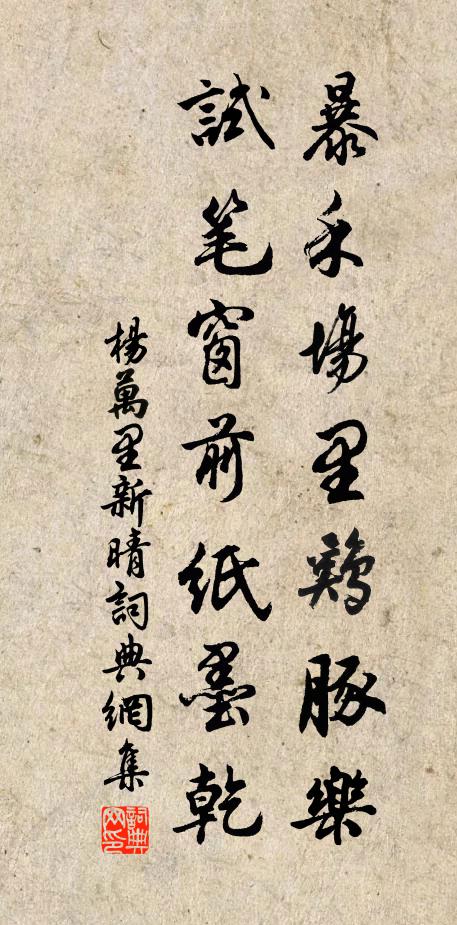 暴禾場里鷄豚樂
試笔窗前紙墨乾
楊萬里新晴詞典網集
詞典网印